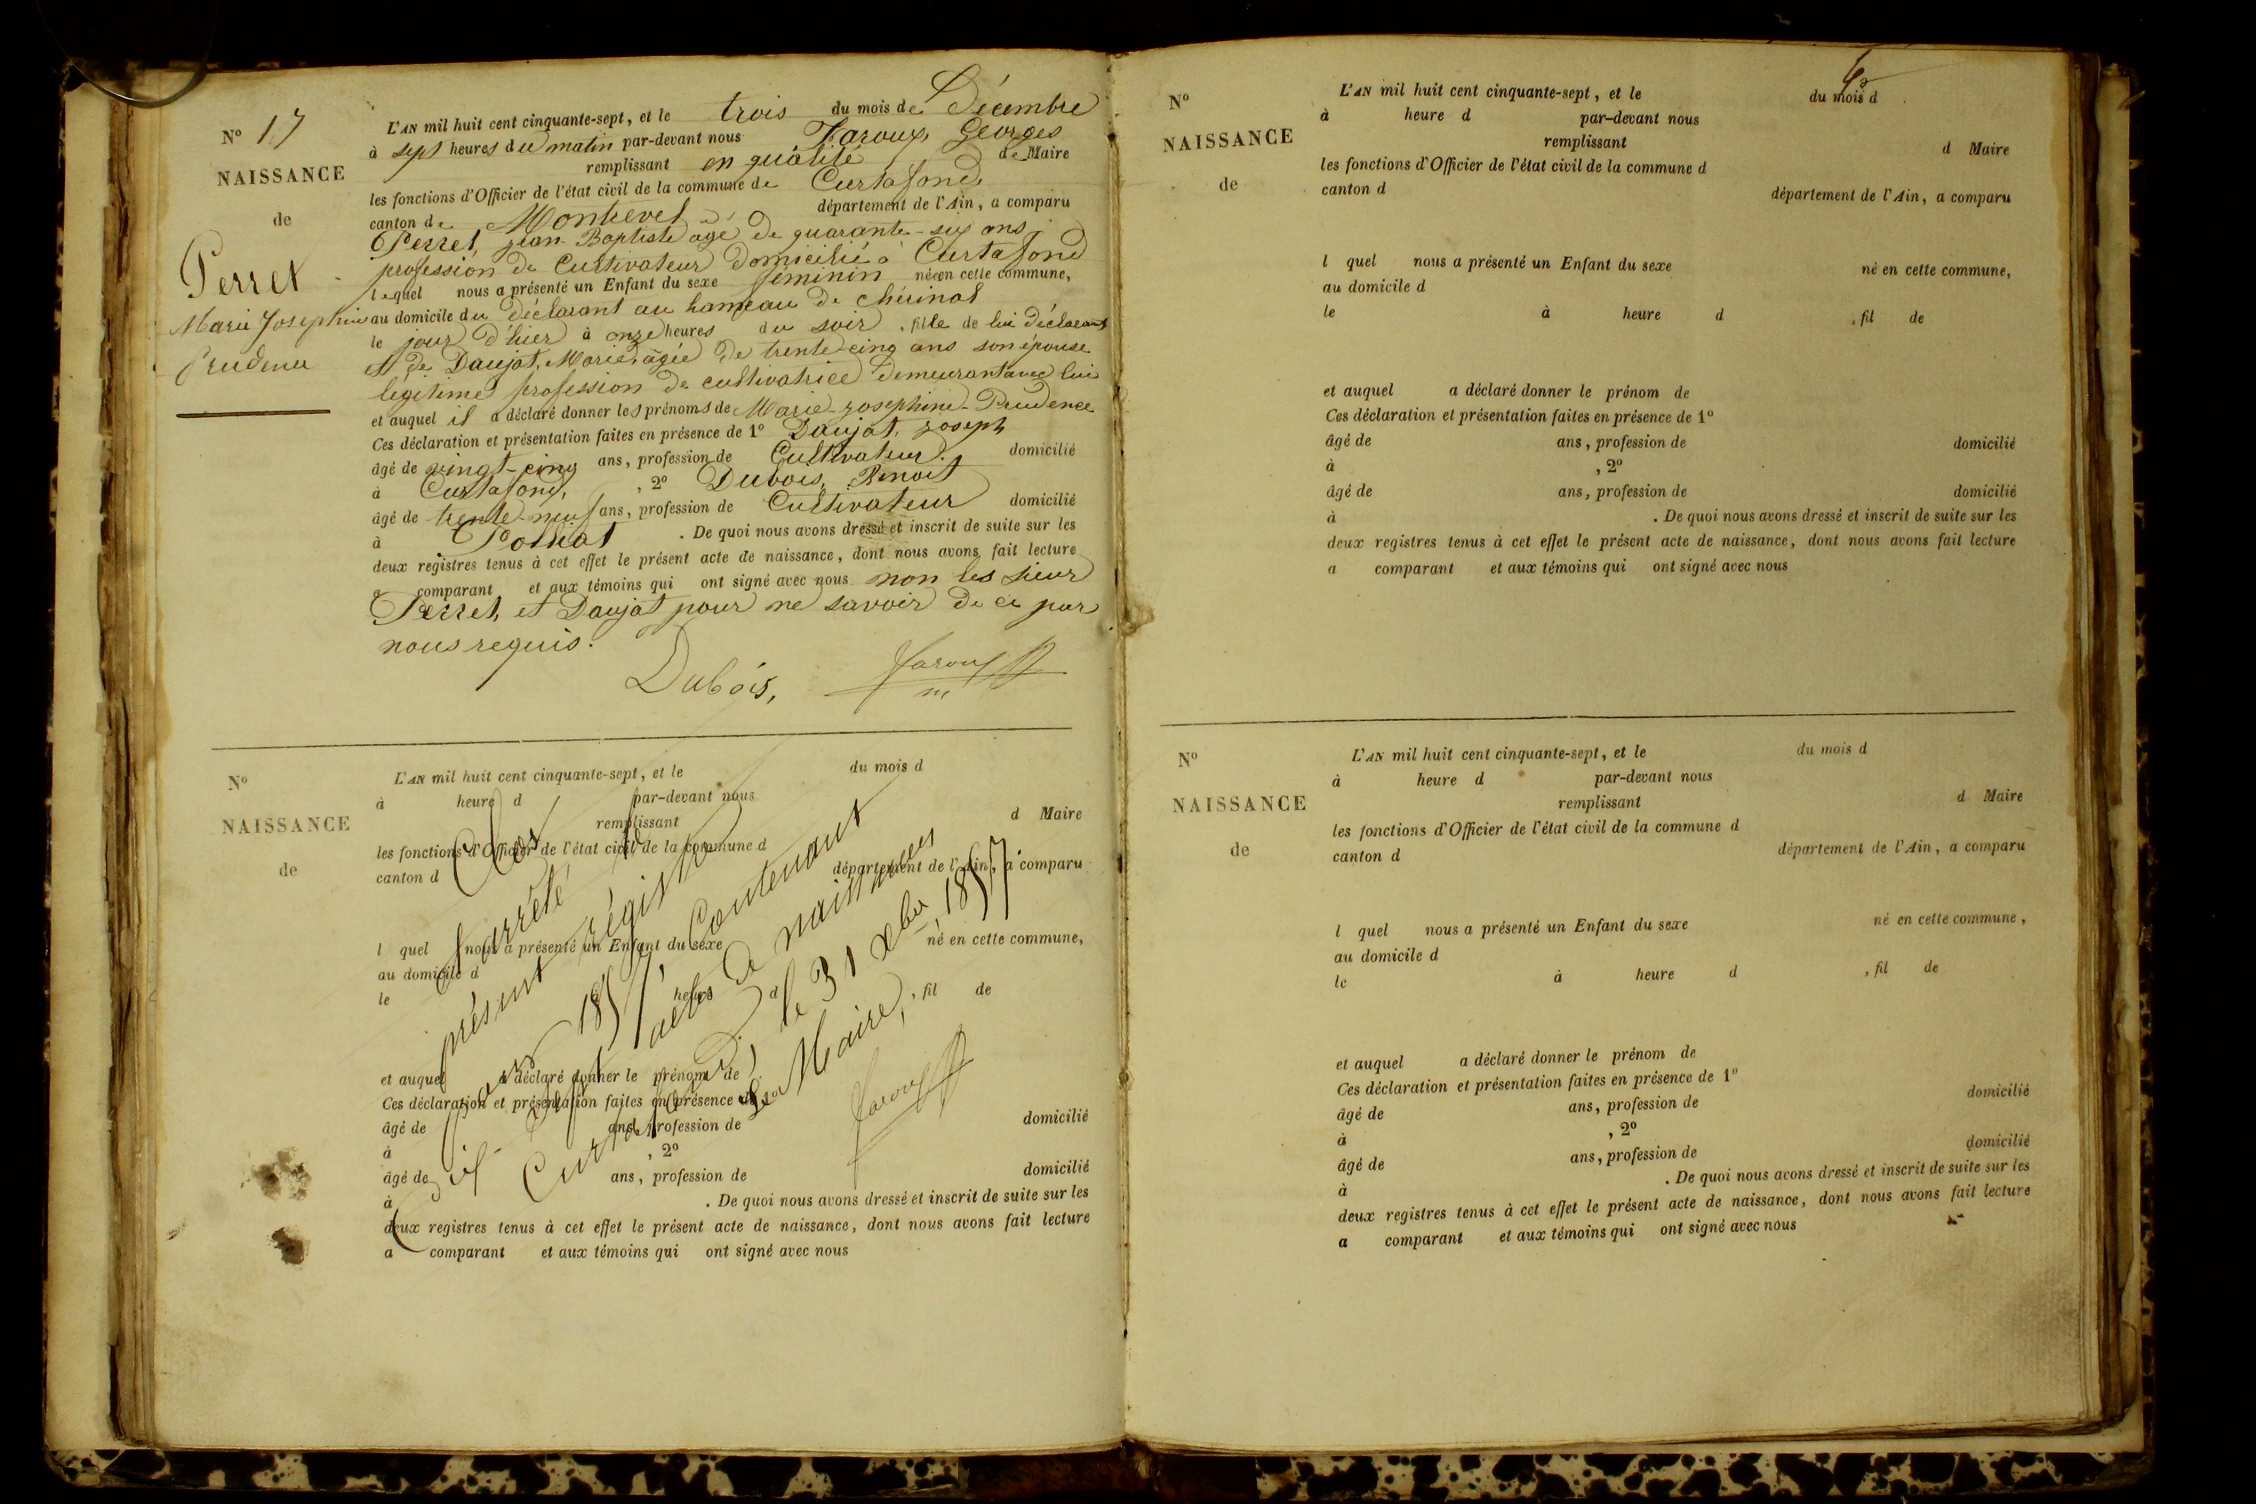 Nº 17
NAISSANCE
de
Perret
Marie Josephine
Prudence
L'AN mil huit cent cinquante-sept, et le trois du mois de Décembre
à sept heures du matin par-devant nous Faroux, Georges
remplissant en qualité de Maire
les fonctions d'Officier de l'état civil de la commune de Curtafond,
canton de Montrevel département de l'Ain, a comparu
Perret, Jean-Baptiste âgé de quarante-six ans,
profession de Cultivateur domicilié à Curtafond
lequel nous a présenté un Enfant du sexe féminin née en cette commune,
au domicile du déclarant au hameau de chérinal
le jour d'hier à onze heures du soir, fille de lui déclarant
et de Daujat, Marie, âgée de trente-cinq ans son épouse
légitime profession de cultivatrice demeurant avec lui
et auquel il a déclaré donner les prénoms de Marie-Josephine-Prudence
Ces déclaration et présentation faites en présence de 1º Daujat, Joseph
âgé de vingt-cinq ans, profession de Cultivateur domicilié
à Curtafond, , 2º Dubois, Benoit
âgé de trente-neuf ans, profession de Cultivateur domicilié
à Polliat . De quoi nous avons dressé et inscrit de suite sur les
deux registres tenus à cet effet le présent acte de naissance, dont nous avons fait lecture
au comparant et aux témoins qui ont signé avec nous non les sieur
Perret, et Daujat pour ne savoir de ce par
nous requis.
Dubois, Faroux
m
Nº
NAISSANCE
de
L'AN mil huit cent cinquante-sept, et le du mois d
à heure d par-devant nous
remplissant d Maire
les fonctions d'Officier de l'état civil de la commune d
canton d département de l'Ain, a comparu
l quel nous a présenté un Enfant du sexe né en cette commune,
au domicile d
le à heure d , fil de
et auquel a déclaré donner le prénom de
Ces déclaration et présentation faites en présence de 1º
âgé de ans, profession de domicilié
à , 2º
âgé de ans, profession de domicilié
à . De quoi nous avons dressé et inscrit de suite sur les
deux registres tenus à cet effet le présent acte de naissance, dont nous avons fait lecture
a comparant et aux témoins qui ont signé avec nous
Clos
et arrêté le
présent régistre
pour 1857, Contenant
dix-sept actes de naissances
Curtafond, le 31 Xbre 1857
Le Maire,
Faroux
Nº
NAISSANCE
de
L'AN mil huit cent cinquante-sept, et le du mois d
à heure d par-devant nous
remplissant d Maire
les fonctions d'Officier de l'état civil de la commune d
canton d département de l'Ain, a comparu
l quel nous a présenté un Enfant du sexe né en cette commune,
au domicile d
le à heure d , fil de
et auquel a déclaré donner le prénom de
Ces déclaration et présentation faites en présence de 1º
âgé de ans, profession de domicilié
à , 2º
âgé de ans, profession de domicilié
à . De quoi nous avons dressé et inscrit de suite sur les
deux registres tenus à cet effet le présent acte de naissance, dont nous avons fait lecture
a comparant et aux témoins qui ont signé avec nous
Nº
NAISSANCE
de
L'AN mil huit cent cinquante-sept, et le du mois d
à heure d par-devant nous
remplissant d Maire
les fonctions d'Officier de l'état civil de la commune d
canton d département de l'Ain, a comparu
l quel nous a présenté un Enfant du sexe né en cette commune,
au domicile d
le à heure d , fil de
et auquel a déclaré donner le prénom de
Ces déclaration et présentation faites en présence de 1º
âgé de ans, profession de domicilié
à , 2º
âgé de ans, profession de domicilié
à . De quoi nous avons dressé et inscrit de suite sur les
deux registres tenus à cet effet le présent acte de naissance, dont nous avons fait lecture
a comparant et aux témoins qui ont signé avec nous